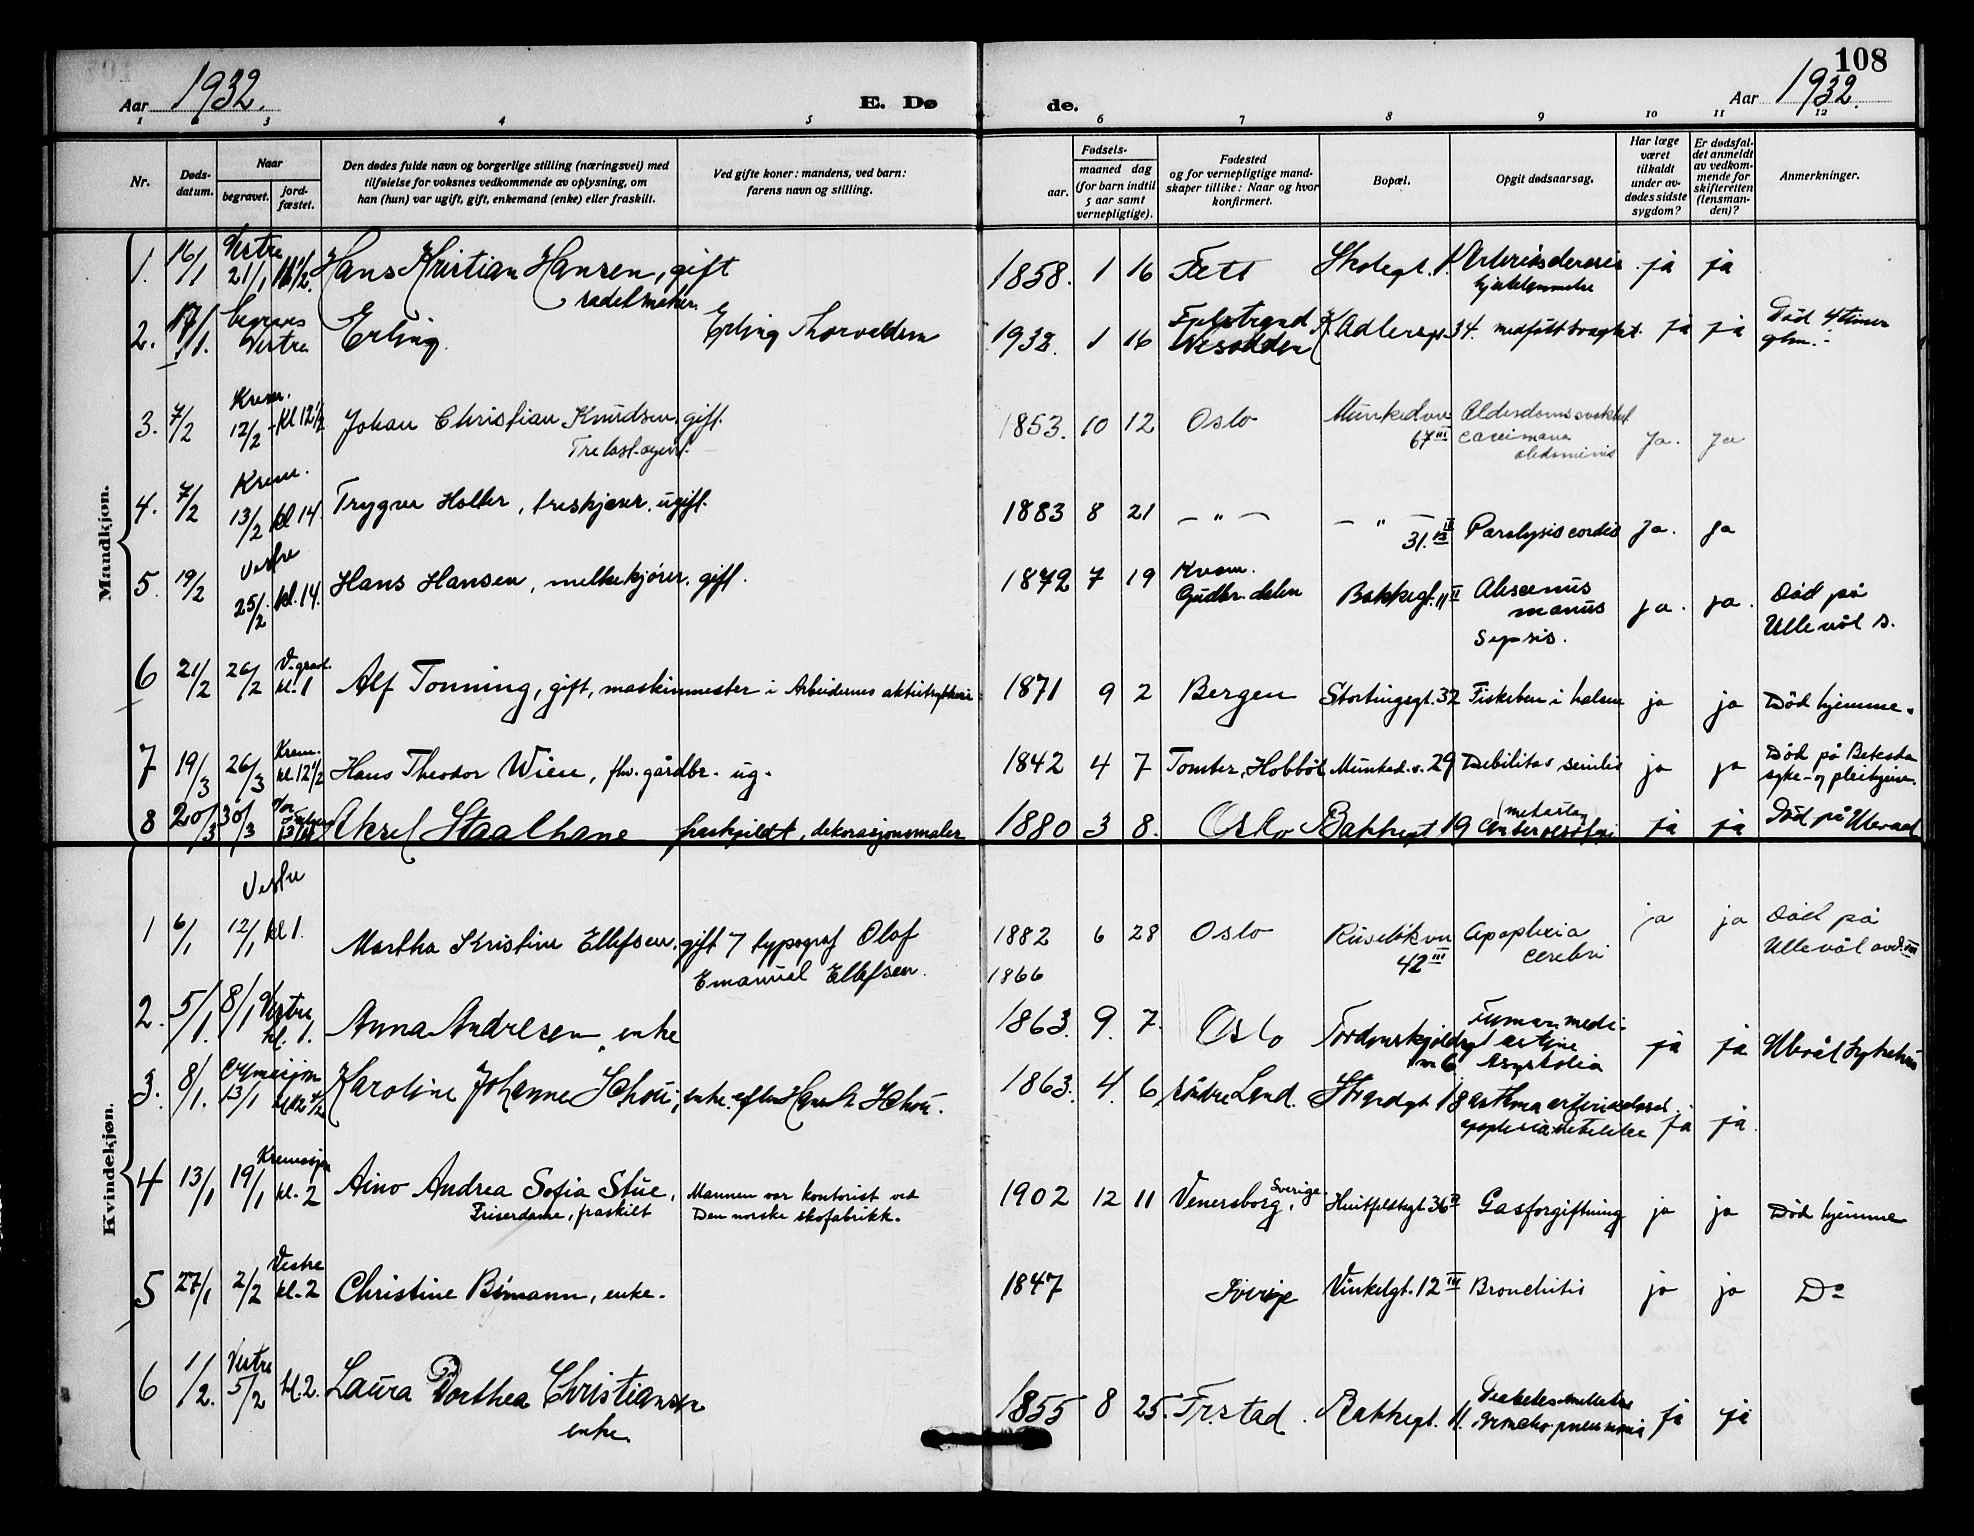 108
Aar 1932. E. Dø de. Aar 1932.
1 2 3 4 5 6 7 8 9 10 11 12
Nr.
Døds-datum.
Naar
begravet.
jord-fæstet.
Den dødes fulde navn og borgerlige stilling (næringsvei) med
tilføielse for voksnes vedkommende av oplysning, om
han (hun) var ugift, gift, enkemand (enke) eller fraskilt.
Ved gifte koner: mandens, ved barn:
farens navn og stilling.
Fødsels-
aar.
maaned dag
(for barn indtil
5 aar samt
vernepligtige).
Fødested
og for vernepligtige mand-
skaper tillike: Naar og hvor
konfirmert.
Bopæl.
Opgit dødsaarsag.
Har læge
været
tilkaldt
under av-
dødes sidste
sygdom?
Er dødsfal-
det anmeldt
av vedkom-
mende for
skifteretten
(lensman-
den)?
Anmerkninger.
Mandkjøn.
1. 16/1 Vestre 21/1 Hans Kristian Hansen, gift 1858. 1 16 Fett Skolegt. ja ja
2. 17/1. Vestre Erling Erling Thorvaldsen 1932. 1 16 Nesodden K. Adlersgt. 34. ja ja Død 4 timer
3. 7/2 Krem. 12/2 kl 12 1/2 Johan Christian Knudsen, gift. 1853. 10 12 Oslo Munkedvn 67 III ja. ja
Trelast-agent.
4. 7/2 Krem. 13/2 kl 14 Trygve Holter, treskjærer, ugift. 1883 8 21 — " — — " — 31. Paralysis cordis ja. ja
5. 19/2 Vestre 25/2 kl. 14. Hans Hansen, melkekjører, gift. 1872 7 19 Kvam. Gudbr. dalen Bakkegt. 11 II manus sepsis. ja. ja. Død på Ullevål s.
6 21/2 26/2 V. gravl. kl. 1 Alf Tonning, gift, maskinmester i Arbeidernes aktietrykkeri 1871 9 2 Bergen Stortingsgt. 32 Fiskeben i halsen ja ja Død hjemme.
7 19/3 26/3 Krem. kl. 12 1/2 Hans Theodor Wien, fhv. gårdbr. ug. 1842 4 7 Tomter, Hobböl Munked. v. 29 Debilitas senilis ja ja Død på Betesda syke- og pleiehjem.
8 20/3 30/3 Aksel Staalhane fraskildt, dekorasjonsmaler 1880 3 8. Oslo Bakkegt 19 ja ja Død på
Kvindekjøn.
1 6/1 Vestre 12/1 kl 1. Martha Kristine Ellefsen, gift 7 typograf Olaf 1882 6 28 Oslo Ruseløkvn 42 III Apoplexia cerebri ja ja Død på Ullevål avd. III
Emanuel Ellefsen. 1866
2. 5/1. 8/1 Vestre kl. 1. Anna Andresen, enke 1863. 9. 7. Oslo Tordenskjoldsgt ja ja Ullevål Sykehus
3. 8/1. 13/1 Karoline Johanne Schou, enke efter Hans Schou. 1863. 4. 6 søndre Land. Strandgt 18 ja ja
4 13/1 19/1 Kremasjon kl. 2 Aino Andrea Sofia Stue, Mannen var kontorist ved 1902 12 11 Venersborg, Sverige. Huitfeldtsgt 36 Gasforgiftning ja ja Död hjemme
Friserdame, fraskilt Den norske skofabrikk.
5 27/1 2/2 Vestre kl. 2 Christine Bömann, enke. 1847 Sverige Vinkelgt. 12 III Bronchitis ja ja Do
6 1/2. Vestre 5/2 kl. 2. Laura Dorthea Christiansen 1855 8 25. Fr.stad. Bakkegt. 11. Diabetes mellitus broncho-pneumoni ja ja
enke